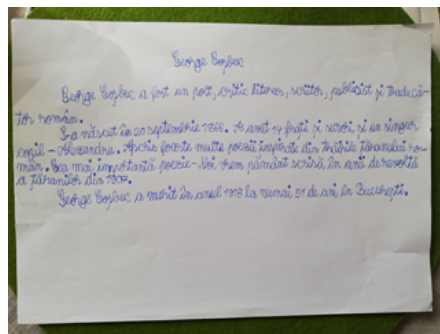 George Coșbuc
George Coșbuc a fost un poet, critic literar, scriitor, publicist și traducă-
tor român.
S-a născut în 20 septembrie 1866. A avut 14 frați și surori, și un singur
copil - Alexandru. A scris foarte multe poezii inspirate din trăirile țăranului ro-
mân. Cea mai importantă poezie - Noi vrem pământ scrisă în anii de revoltă
a țăranilor din 1907.
George Coșbuc a murit în anul 1918 la numai 51 de ani în București.